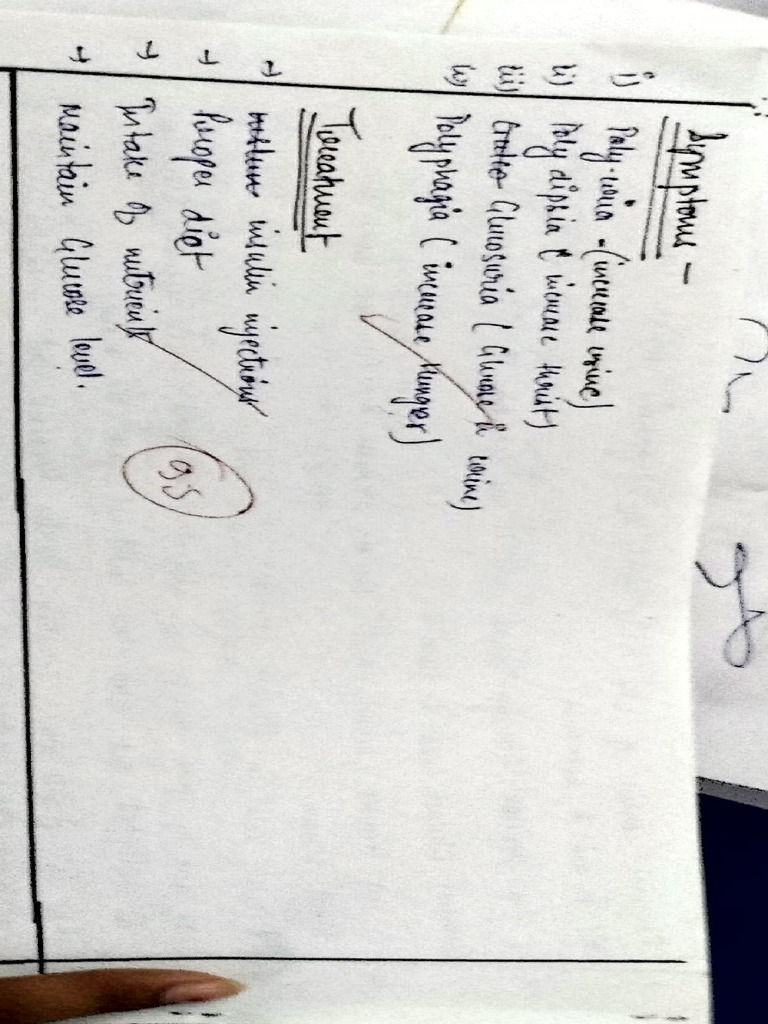 Symptoms -
i) Poly-uria - (increase urine)
ii) Poly diphia ( increase thirst)
iii) Glucosuria ( Glucose in urine)
iv) Polyphagia ( increase hunger)
Treatment
→ insulin injections
→ Proper diet
→ Intake of nutrients
→ Maintain Glucose level.
9.5